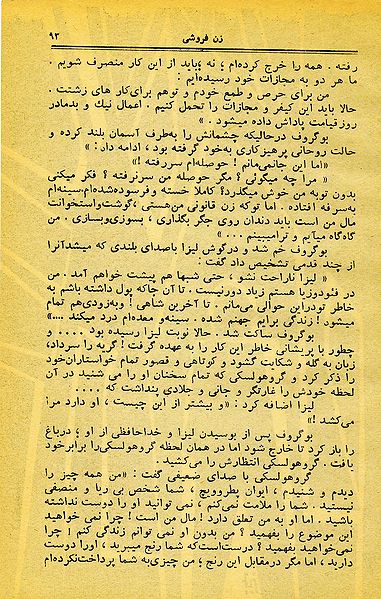 زن فروشی ۹۳
رفته . همه را خرج کرده‌ام ؛ نه ؛ باید از این کار منصرف شویم .
ما هر دو به مجازات خود رسیده‌ایم :
من برای حرص و طمع خودم و توهم برای‌کار های زشتت .
حالا باید این کیفر و مجازات را تحمل کنیم . اعمال نیك و بدمادر
روزقیامت پاداش داده میشود . »
بوگروف درحالیکه چشمانش را به‌طرف آسمان بلند کرده و
حالت روحانی پرهیزکاری به‌خود گرفته بود ، ادامه داد : »
«اما این جانمی‌مانم ! حوصله‌ام سررفته !»
« مرا چه میگوئی ؟ مگر حوصله من سرنرفته ؟ فکر میکنی
بدون توبه من خوش میگذرد؟ کاملا خسته و فرسوده‌شده‌ام،سینه‌ام
به‌سرفه افتاده . اما توکه زن قانونی من‌هستی ،گوشت‌واستخوانت
مال من است باید دندان روی جگر بگذاری ، بسوزی‌وبسازی . من
گاه‌گاه میآیم و ترامیبینم . . »
بوگروف خم شد و درگوش لیزا باصدای بلندی که میشدآنرا
از چند قدمی تشخیص داد گفت :
« لیزا ناراحت نشو ، حتی شبها هم پیشت خواهم آمد . من
در فئودوزیا هستم زیاد دورنیست . تا آن جاکه پول داشته باشم به
خاطر تودراین حوالی می‌مانم . تا آخرین شاهی ! وبه‌زودی‌هم تمام
میشود ! زندگی برایم جهنم شده . سینه‌و معده‌ام درد میکند ....»
بوگروف ساکت شد . حالا نوبت لیزا رسیده بود .... و
چطور با پریشانی خاطر این کار را به عهده گرفت ! گریه را سرداد،
زبان به گله و شکایت گشود و کوتاهی و قصور تمام خواستاران‌خود
را ذکر کرد و گروهولسکی که تمام سخنان او را می شنید در آن
لحظه خودش را غارتگر و جانی و جلادی پنداشت که ....
لیزا اضافه کرد : «و بیشتر از این چیست ، او دارد مرا
می‌کشد !»
بوگروف پس از بوسیدن لیزا و خداحافظی از او ؛درباغ
را باز کرد تا خارج شود اما در همان لحظه گروهولسکی‌را برابرخود
یافت . گروهولسکی انتظارش را می‌کشید.
گروهولسکی با صدای ضعیفی گفت : «من همه چیز را
دیدم و شنیدم ، ایوان پطروویچ ، شما شخص بی ریا و منصفی
نیستید . شما را ملامت نمی‌کنم ، نمی توانید او را دوست نداشته
باشید . اما او به من تعلق دارد ! مال من است ! چرا نمی خواهید
این موضوع را بفهمید ؟ من بدون او نمی توانم زندگی کنم ! چرا
نمی‌خواهید بفهمید ؟ درست‌است‌که شما رنج میبرید ، اورا دوست
دارید ، اما مگر درمقابل این رنج ؛ من چیزی‌به شما پرداخت‌نکرده‌ام